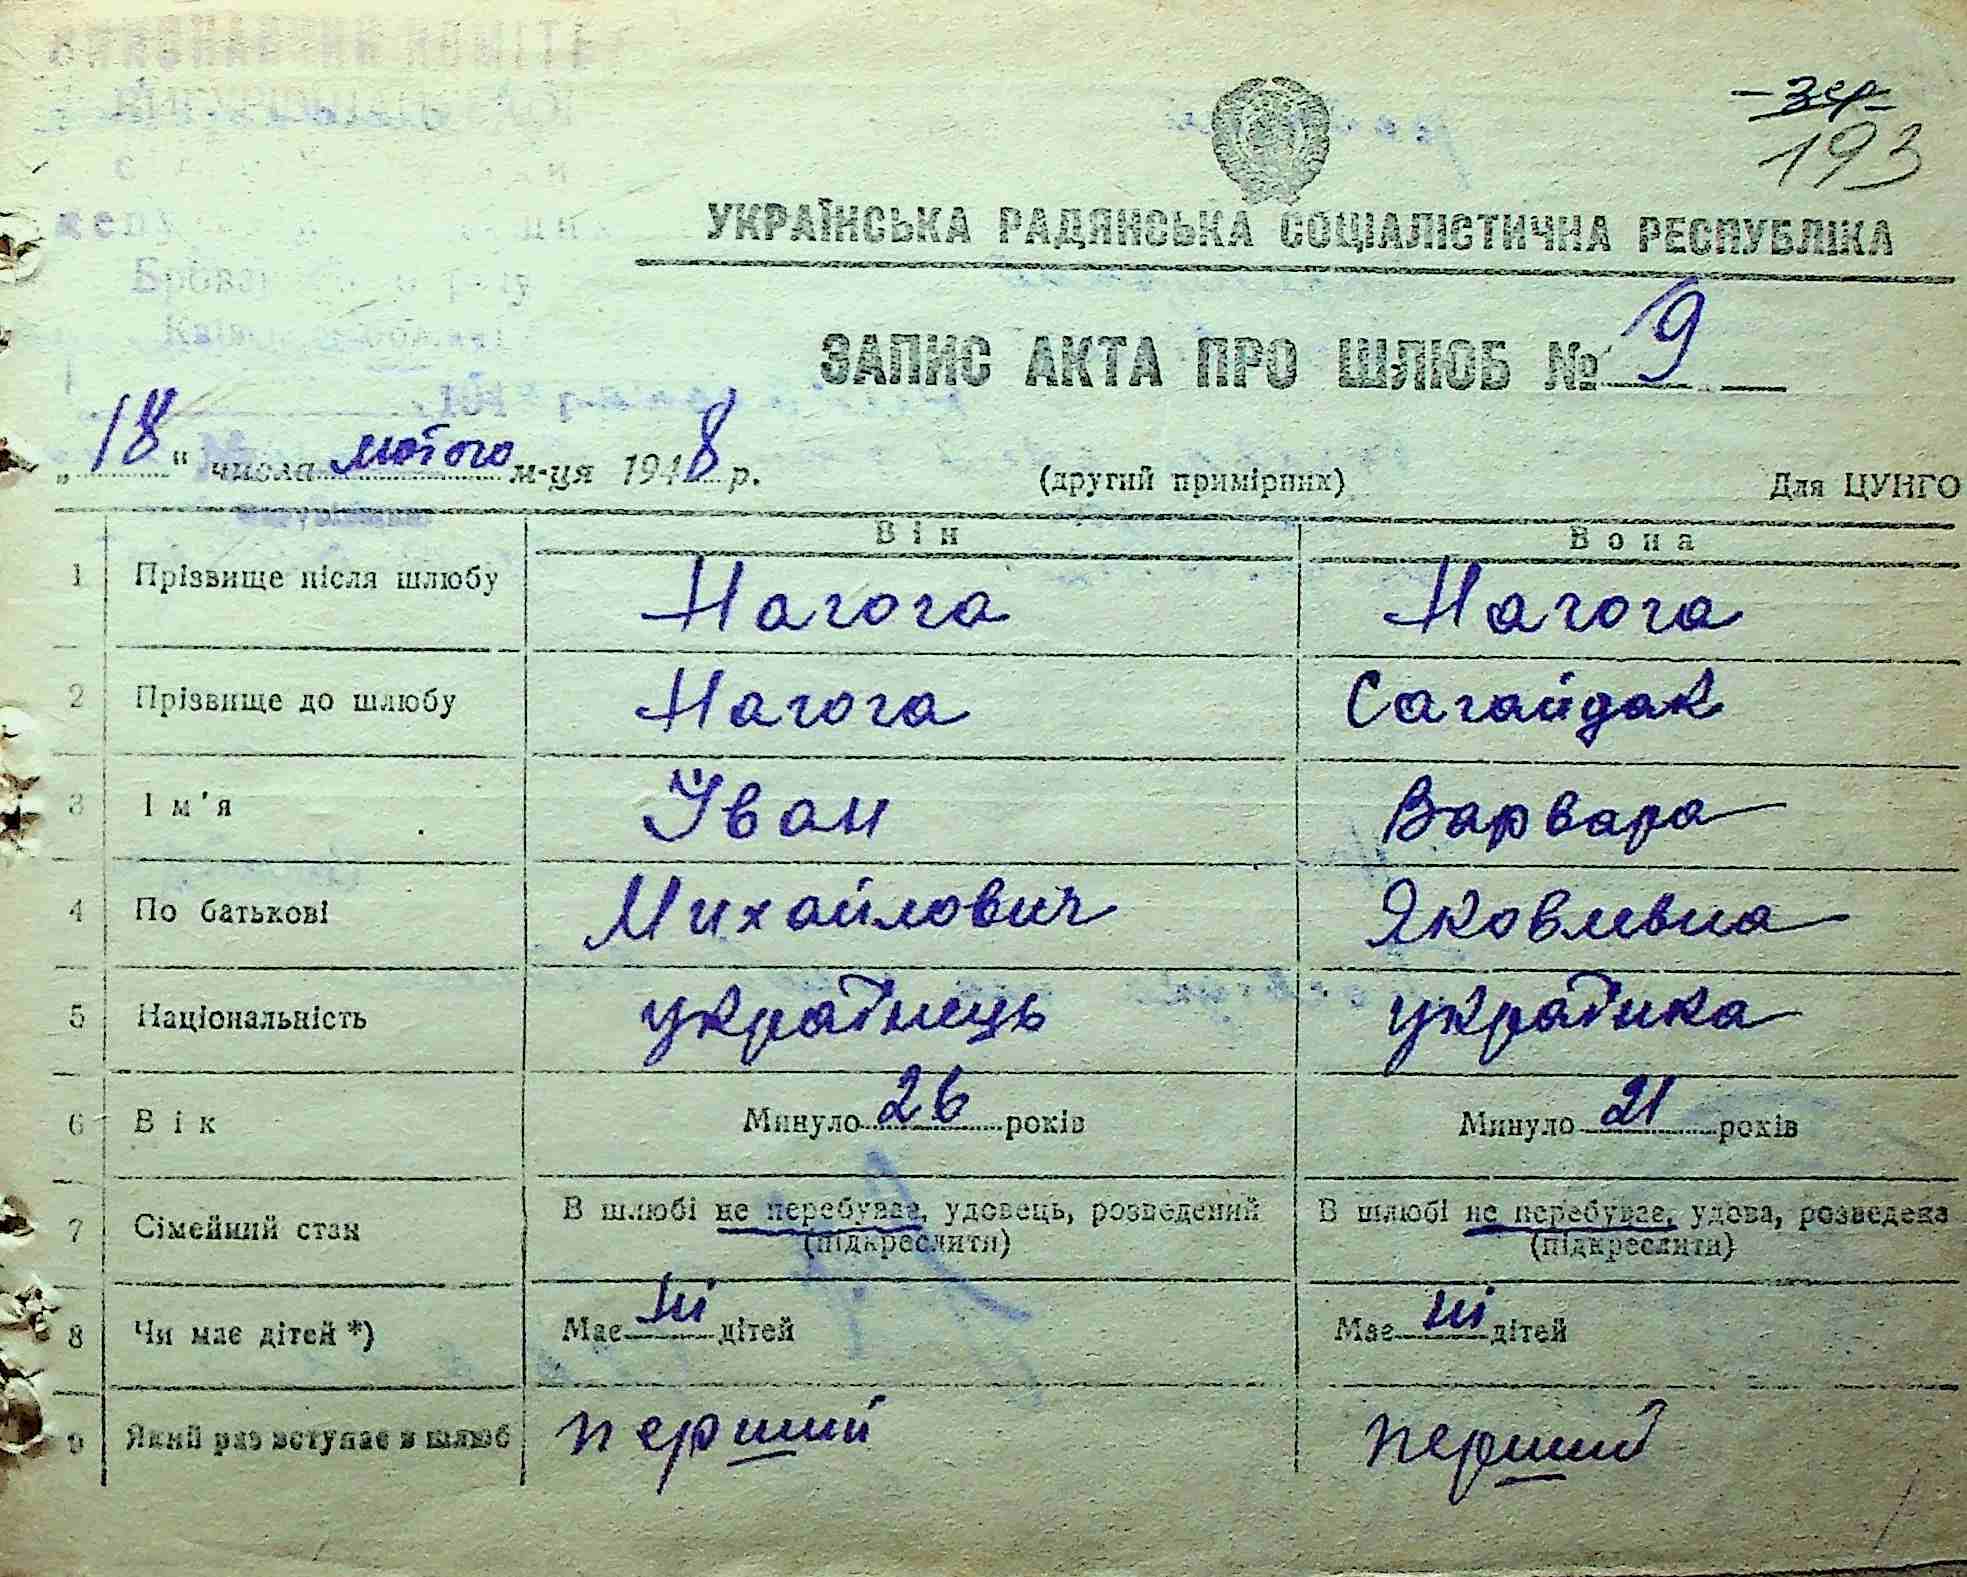 193
УКРАЇНСЬКА РАДЯНСЬКА СОЦІАЛІСТИЧНА РЕСПУБЛІКА
ЗАПИС АКТА ПРО ШЛЮБ № 9
„18“ числа лютого м-ця 1948 р. (другий примірник) Для ЦУНГО
Він Вона
1 Прізвище після шлюбу Нагога Нагога
2 Прізвище до шлюбу Нагога Сагайдак
3 Ім'я Іван Варвара
4 По батькові Михайлович Яковлевна
5 Національність українець українка
6 Вік Минуло 26 років Минуло 21 років
7 Сімейний стан В шлюбі не перебуває, удовець, розведений В шлюбі не перебуває, удова, розведена
(підкреслити) (підкреслити)
8 Чи має дітей *) Має ні дітей Має ні дітей
9 Який раз вступає в шлюб перший перший